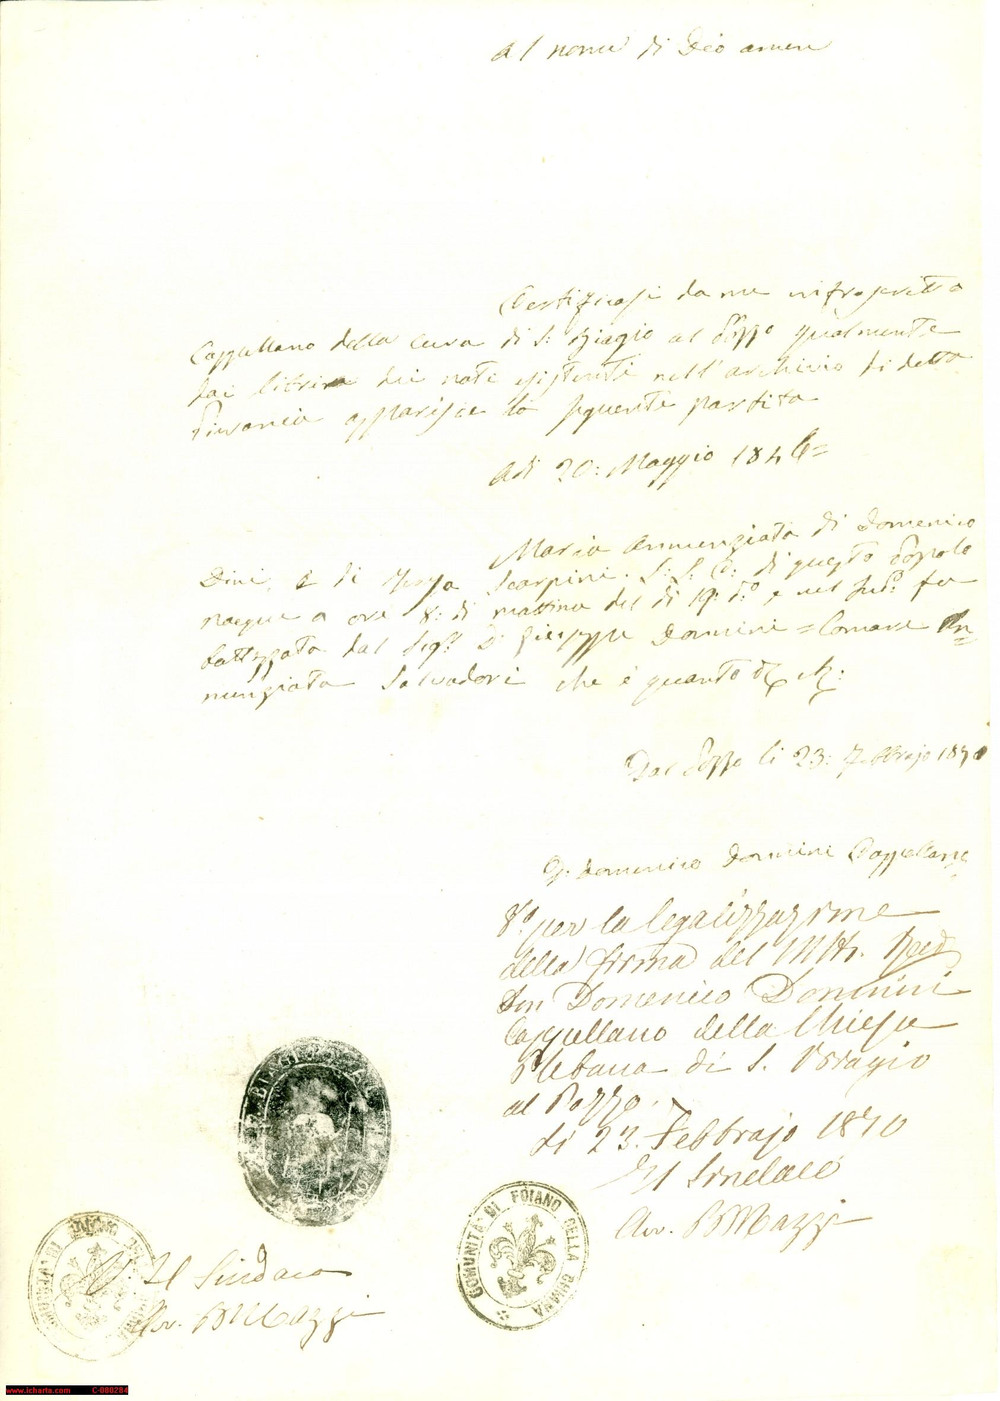 Al nome di Dio amen
Certificasi da me infrascritto
Cappellano della Cura di S: Biagio al Pozzo qualmente
dai libri dei nati esistenti nell'archivio di detta
apparisce la seguente partita
Adi 20: Maggio 1846=
Maria Annunziata di Domenico
Dini, e di Scarpini. S: S: C: di questo Popolo
nacque a ore 8: di mattina del dì 19: do e nel sudo fu
battezzata dal Sigr D: Giuseppe Donnini = Comare An=
nunziata Salvadori che è quanto
Dal Pozzo li 23: Febbrajo 1870
P. Domenico Donnini Cappellano
Vo per la legalizzazione
della firma del Mto. Revd
Don Domenico Donnini
Cappellano della Chiesa
Plebana di S. Biagio
al Pozzo.
di 23. Febbrajo 1870
Il Sindaco
Avv. B Mazzi
COMUNITÀ DI FOIANO DELLA CHIANA
V. Il Sindaco
Avv. B Mazzi
www.icharta.com C-080284